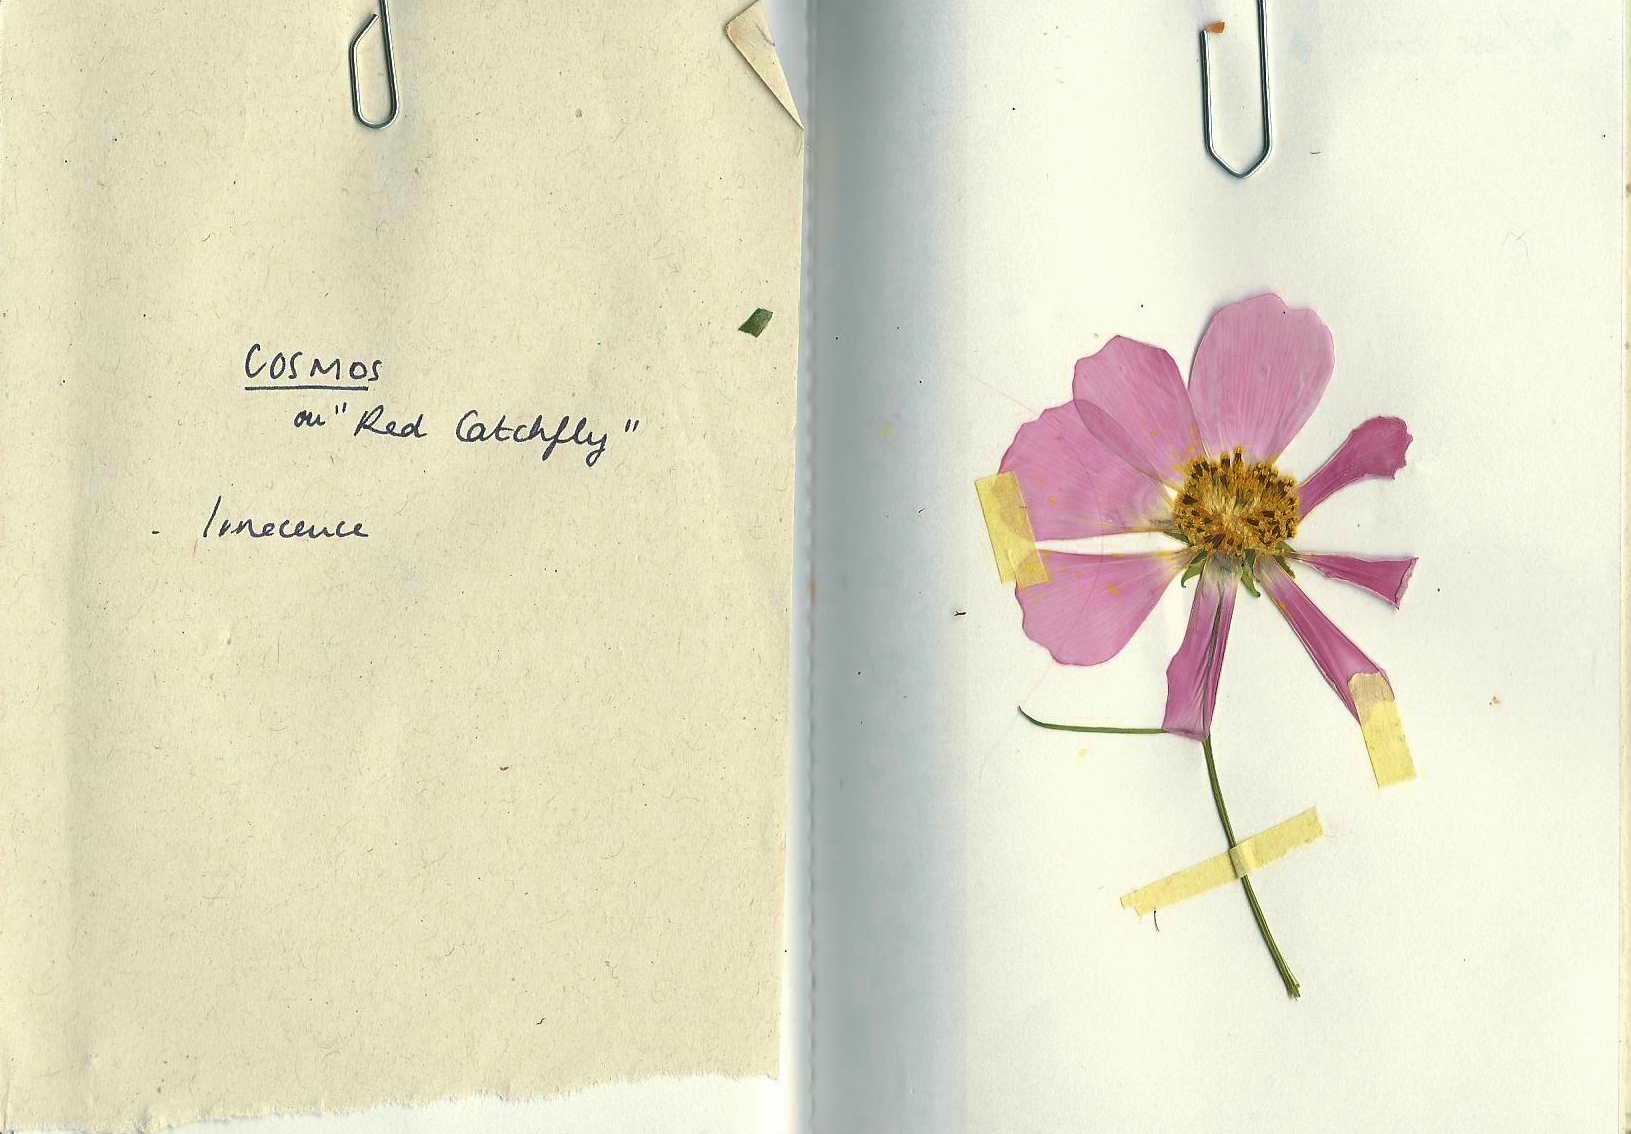 COSMOS
or "Red Catchfly"
- Innocence